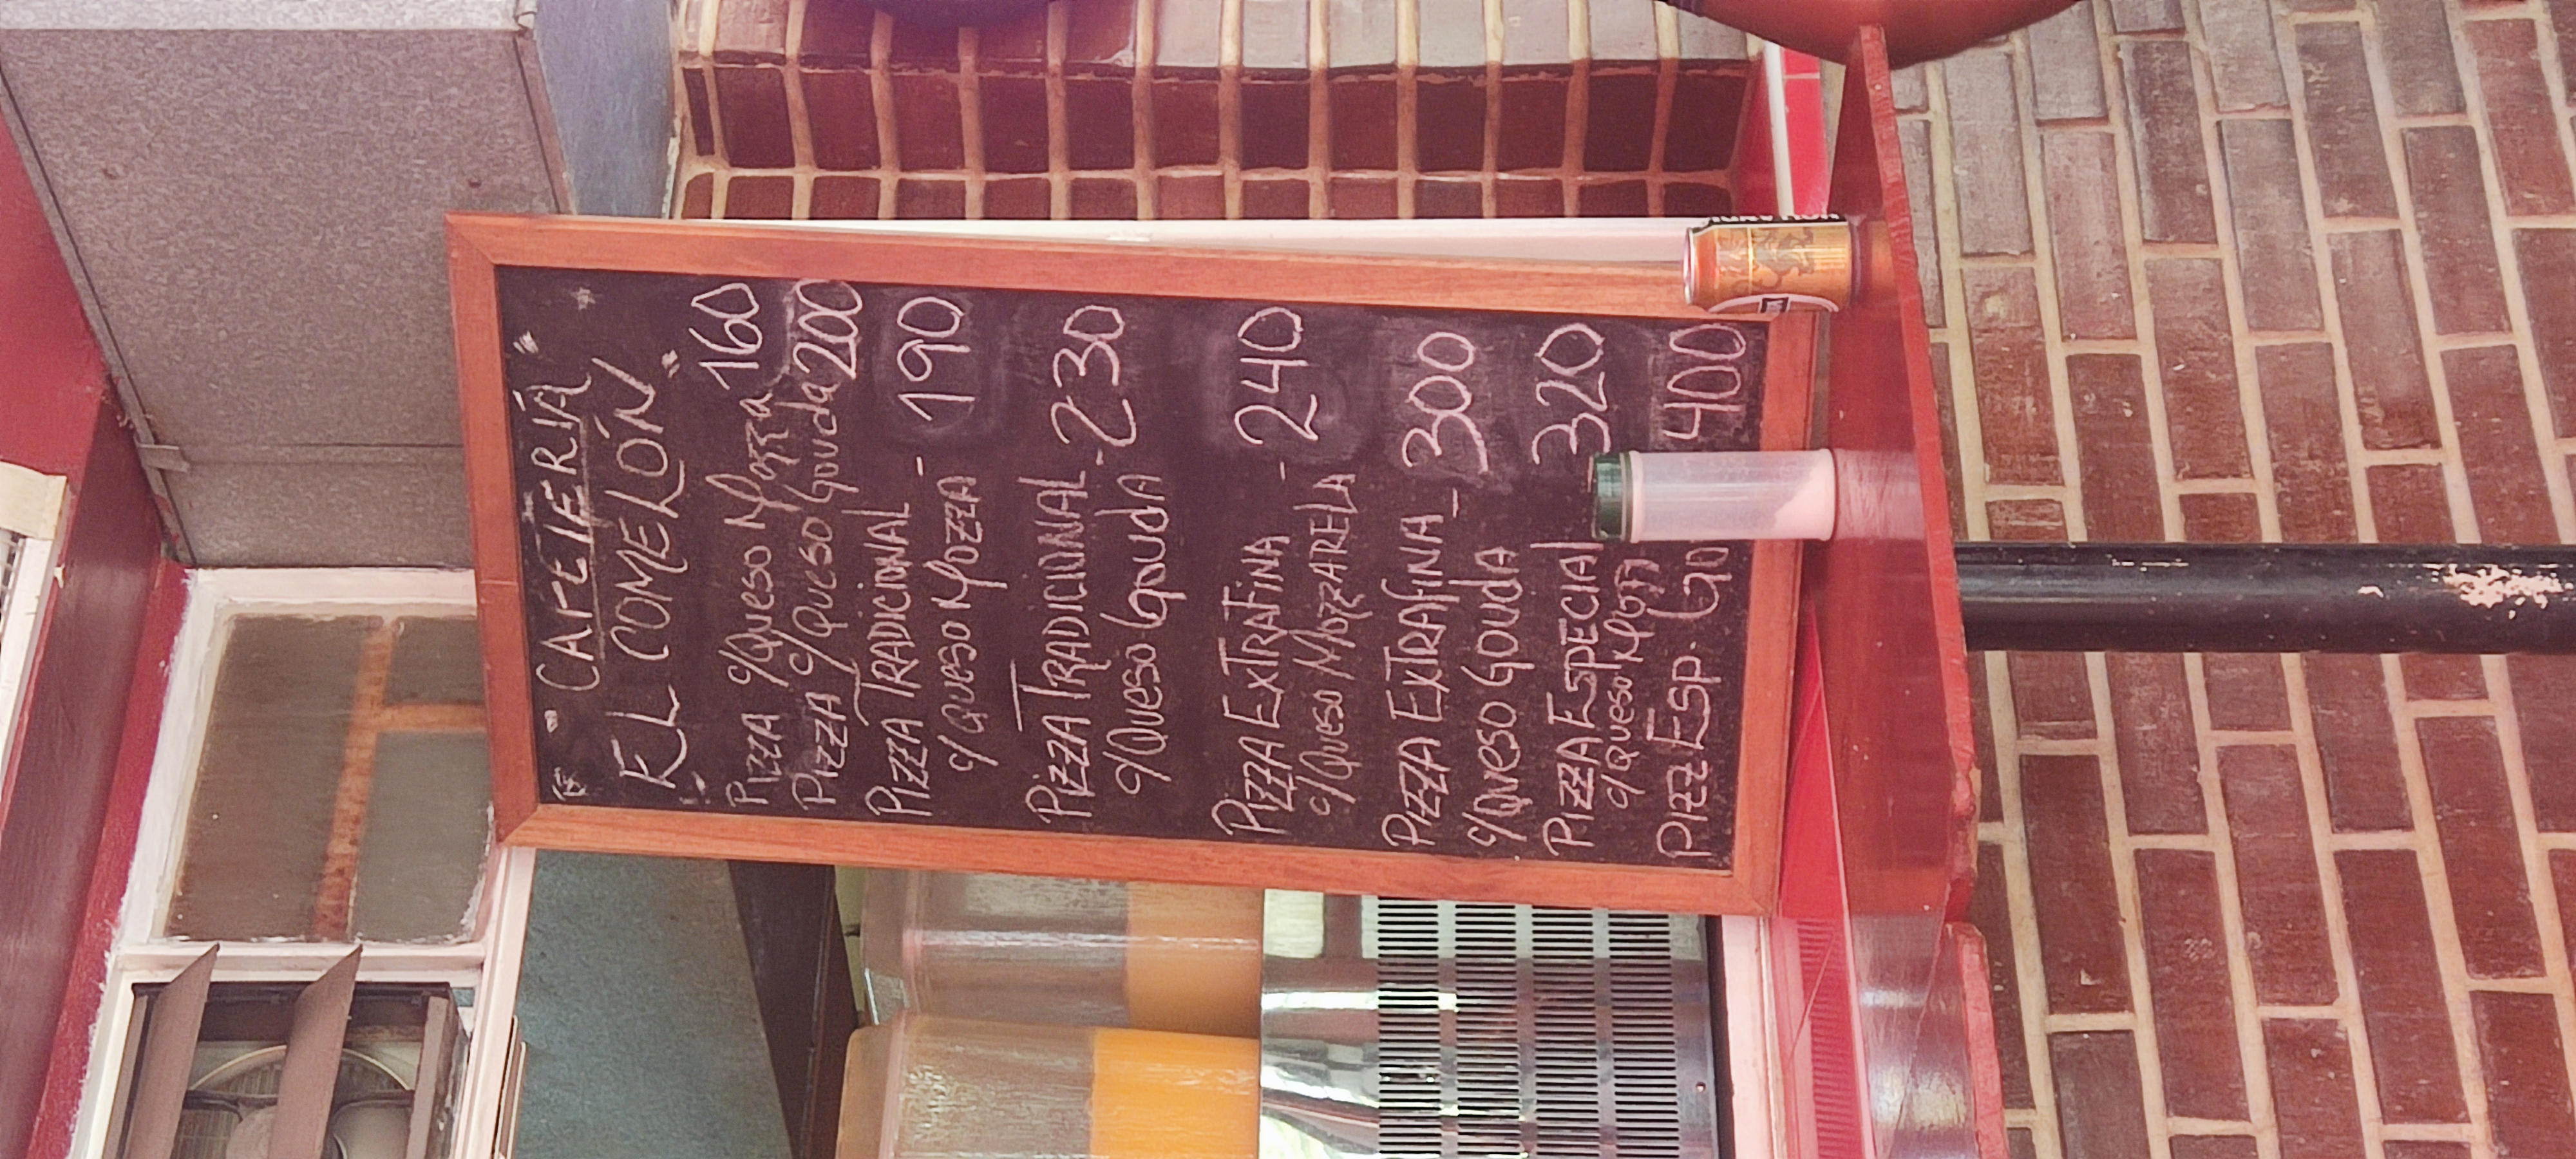 " CAFETERIA "
EL COMELÓN
PIZZA c/Queso Mozza 160
PIZZA c/Queso Gouda 200
PIZZA TRADICIONAL
c/queso MOZZA - 190
PIZZA TRADICIONAL
c/Queso Gouda - 230
PIZZA EXTRAFINA
c/Queso MOZZARELA - 240
PIZZA EXTRAfINA - 300
c/Queso GOUdA
PIZZA ESPECIAl 320
c/Queso Mozz
PIZZ ESP. GO 400